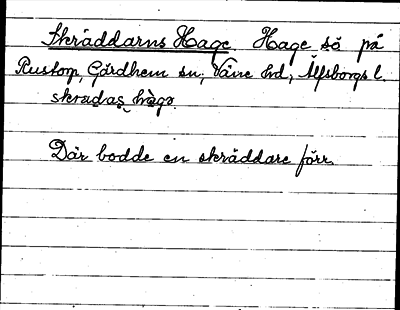 Skräddarns Hage. Hage så på
Rustorp, Gärdhem sn, Väne hd, Älfsborgs l.
skradas hags.
Där bodde en skräddare förr.